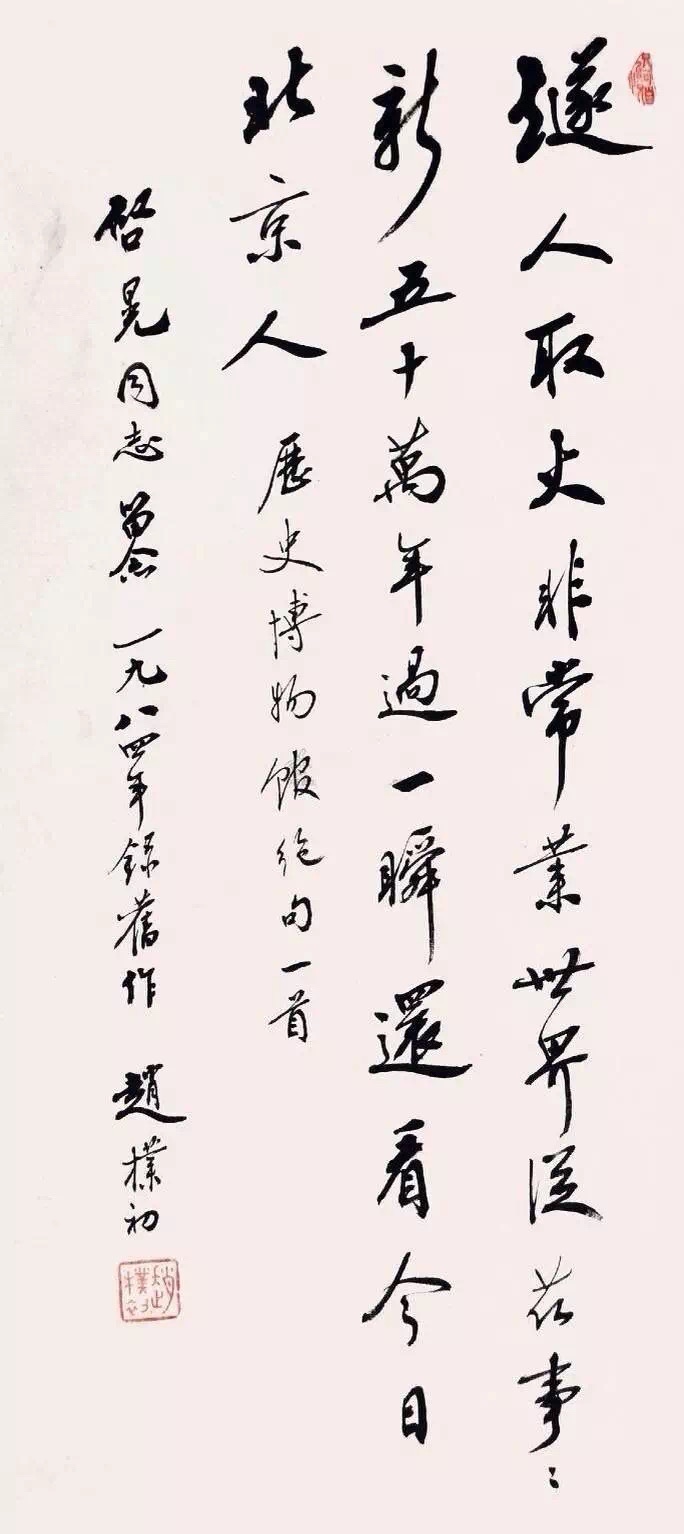 燧人取火非常業世界從茲事〻
新五十萬年過一瞬還看今日
北京人 歷史博物館絕句一首
啓晃同志留念 一九八四年錄舊作 趙樸初
趙樸初